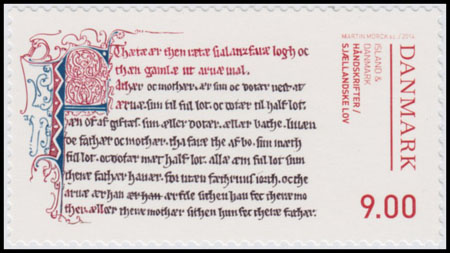 Thættæ ær then rætæ sialanzfaræ logh oc
thæn gamlæ ut aruæ mal.
fathær oc mothær. ær sun oc dotær
aruæ. sun til ful lot. oc dotær til half lot.
æn af giftas. sun æller dotær. æller bathe. liuæn
oc fathær oc mothær. tha fare the af bo. sun mæth
ful lot. oc dotær mæth half lot. allæ æm ful lot sum
there fathær hauær. for utæn fæthrnis iorth. oc the
aruæ ær han ær sithen hun fec there mo
ther. æller there mothær sithen hun fec there fathær.
MARTIN MÖRCK sc. / 2014
ISLAND &
DANMARK
HÅNDSKRIFTER /
SJÆLLANDSKE LOV
DANMARK
9.00